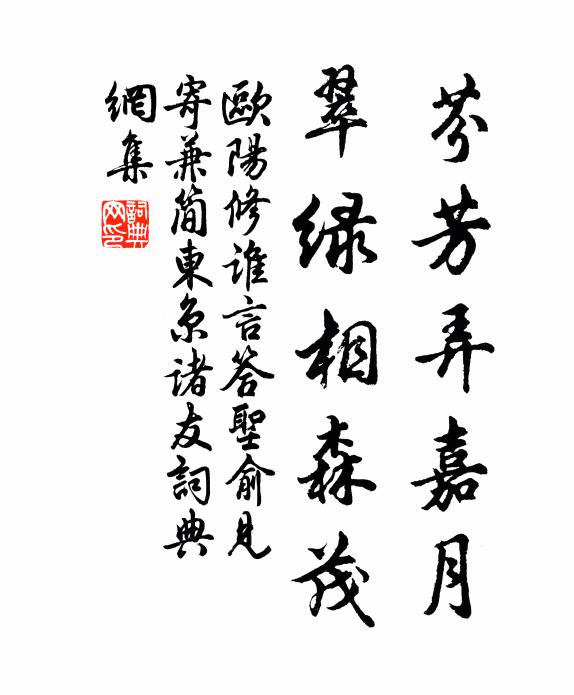 芬芳弄嘉月
翠绿相森茂
歐陽修誰言答聖俞見
寄兼簡東京諸友詞典
網集
詞典网印